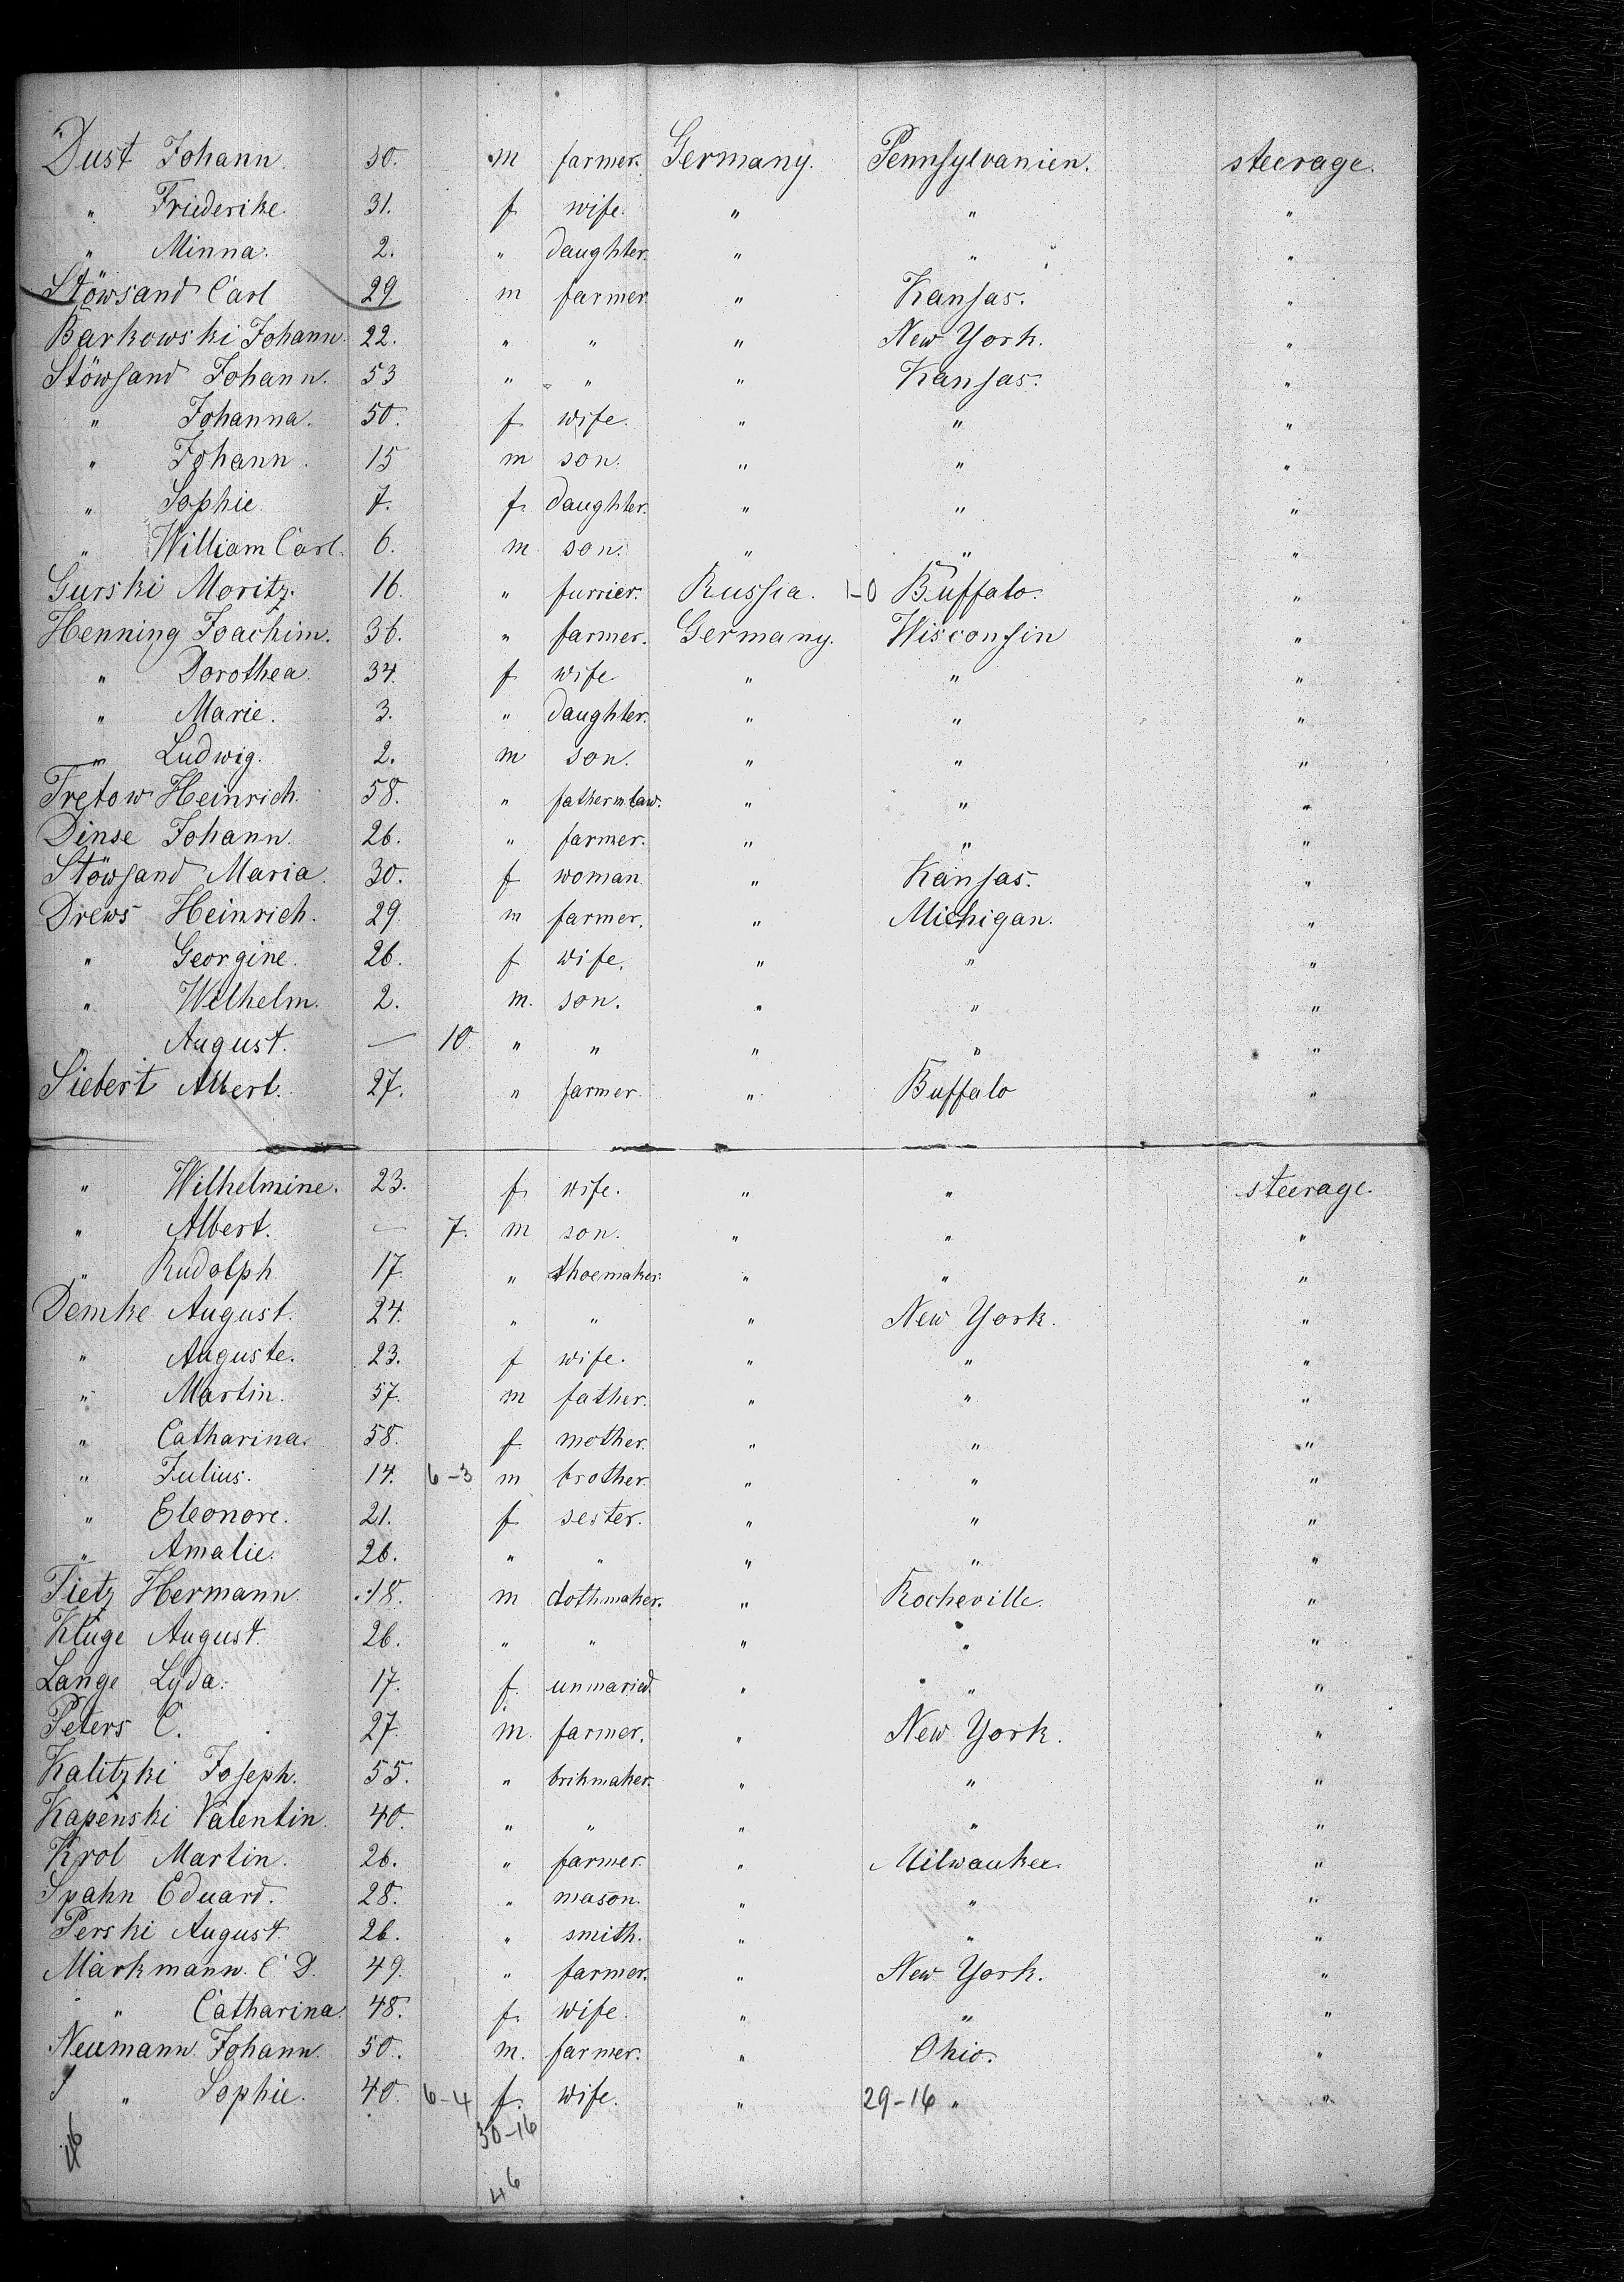 Dust Johann. 30. m farmer. Germany. Pennsylvanien. steerage.
" Friederike. 31. f wife. " " "
" Minna. 2. " daughter. " " "
Stöwsand Carl 29 m farmer " Kansas. "
Barkowski Johann. 22. " " " New York. "
Stöwsand Johann. 53 " " " Kansas. "
" Johanna. 50. f wife. " " "
" Johann. 15 m son. " " "
" Sophie. 7. f. daughter. " " "
" William Carl. 6. m. son. " " "
Gurski Moritz. 16. " furrier. Russia. 1-0 Buffalo. "
Henning Joachim. 36. " farmer. Germany. Wisconsin "
" Dorothea. 34. f wife. " " "
" Marie. 3. " daughter. " " "
" Ludwig. 2. m son. " " "
Tretow Heinrich. 58. " father in law. " " "
Dinse Johann. 26. " farmer. " " "
Stöwsand Maria. 30. f woman. " Kansas. "
Drews Heinrich. 29. m farmer. " Michigan. "
" Georgine. 26. f wife. " " "
" Wilhelm. 2. m. son. " " "
" August. — 10 " " " " "
Siebert Albert. 27. " farmer. " Buffalo "
" Wilhelmine. 23. f. wife. " " steerage.
" Albert. — 7. m son. " " "
" Rudolph 17. " shoemaker. " " "
Demke August. 24. " " " New York. "
" Auguste. 23. f wife. " " "
" Martin. 57. m father. " " "
" Catharina. 58. f mother. " " "
" Julius. 14. 6-3 m brother. " " "
" Eleonore. 21. f sester. " " "
" Amalie. 26. " " " " "
Tietz Hermann 18. m clothmaker. " Rocheville. "
Kluge August. 26. " " " " "
Lange Lyda. 17. f. unmaried. " " "
Peters C. 27. m. farmer. " New York. "
Kalitzki Joseph. 55. " brikmaker. " " "
Kapenski Valentin. 40. " " " " "
Krol Martin. 26. " farmer. " Milwaukee. "
Spahn Eduard. 28. " mason. " " "
Perski August 26. " smith. " " "
Markmann. C D. 49. " farmer. " New York. "
" Catharina. 48. f. wife. " " "
Neumann Johann. 50. m. farmer. " Ohio. "
" Sophie. 40. 6-4 f. wife. " 29-16 " "
30-16
46
46